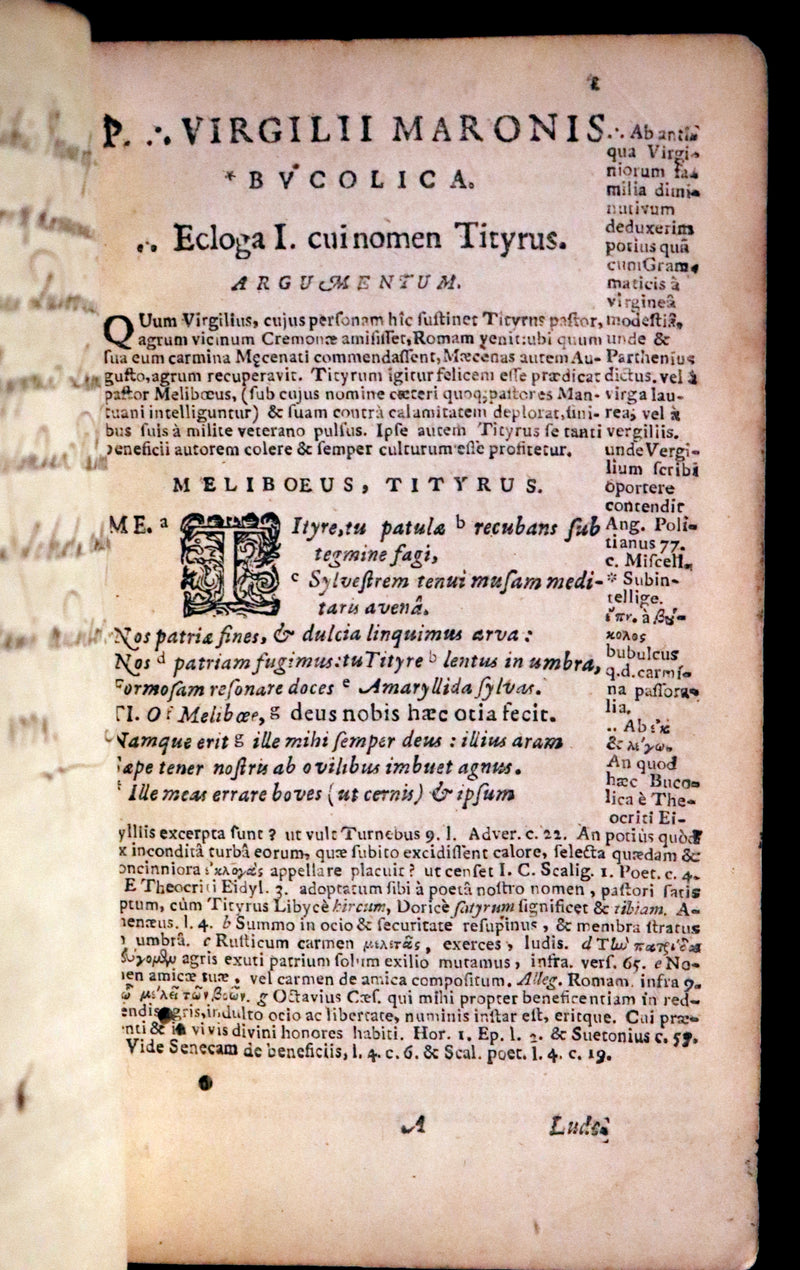 P. ∴ VIRGILII MARONIS
* BVCOLICA.
∴ Ecloga I. cui nomen Tityrus.
ARGUMENTUM.
QUum Virgilius, cujus personam hîc sustinet Tityrus pastor,
agrum vicinum Cremonæ amisisset, Romam venit: ubi quum
sua eum carmina Męcenati commendassent, Mæcenas autem Au-
gusto, agrum recuperavit. Tityrum igitur felicem esse prædicat
pastor Melibœus, (sub cujus nomine cæteri quoq; pastores Man-
tuani intelliguntur) & suam contrà calamitatem deplorat, fini-
bus suis à milite veterano pulsus. Ipse autem Tityrus se tanti
beneficii autorem colere & semper culturum esse profitetur.
MELIBOEUS, TITYRUS.
ME. a TItyre, tu patulæ b recubans sub
tegmine fagi,
c Sylvestrem tenui musam medi-
taris avenâ.
Nos patriæ fines, & dulcia linquimus arva:
Nos d patriam fugimus: tu Tityre b lentus in umbra,
Formosam resonare doces e Amaryllida sylvas.
TI. O f Melibœe, g deus nobis hæc otia fecit.
Namque erit g ille mihi semper deus: illius aram
sæpe tener nostris ab ovilibus imbuet agnus.
Ille meas errare boves (ut cernis) & ipsum
∴ Ab anti-
qua Virgi-
niorum fa-
milia dimi-
nutivum
deduxerim
potius quâ
cum Gram-
maticis à
virgineâ
modestiâ,
unde &
Parthenius
dictus. vel à
virga lau-
rea; vel à
vergiliis.
unde Vergi-
lium scribi
oportere
contendit
Ang. Poli-
tianus 77.
c. Miscell.
* Subin-
tellige.
ἐπη. à βȣ-
κολος
bubulcus
q.d. carmi-
na pastora-
lia.
∴ Ab ἐκ
& λέγω.
An quod
hæc Buco-
lica è The-
ocriti Ei-
yllîis excerpta sunt? ut vult Turnebus 9. l. Adver. c. 22. An potiùs quòd
x inconditâ turbâ eorum, quæ subito excidissent calore, selecta quædam &
oncinniora ἐκλογὰς appellare placuit? ut censet I. C. Scalig. 1. Poet. c. 4.
E Theocriti Eidyl. 3. adoptatum sibi à poetâ nostro nomen, pastori satis
ptum, cùm Tityrus Libycè hircum, Doricè satyrum significet & tibiam. A-
ienæus. l. 4. b Summo in ocio & securitate resupinus, & membra stratus
umbrâ. c Rusticum carmen μελετᾶς, exerces, ludis. d Τὼ πατρίδα
agris exuti patrium solum exilio mutamus, infra. vers. 65. e No-
ien amicæ tuæ, vel carmen de amica compositum. Alleg. Romam. infra 9.
ᾧ μέλει τῶν βοῶν. g Octavius Cæs. qui mihi propter beneficentiam in red-
endis agris, indulto ocio ac libertate, numinis instar est, eritque. Cui præ-
nti & vivis divini honores habiti. Hor. 1. Ep. l. 2. & Suetonius c. 59.
Vide Senecam de beneficiis, l. 4. c. 6. & Scal. poet. l. 4. c. 19.
A Lude